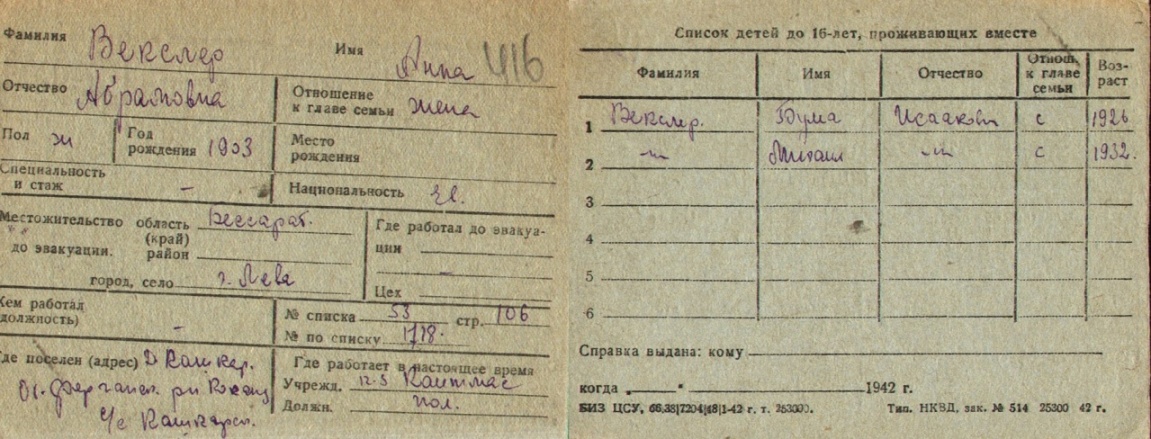 Фамилия Векслер Имя Анна 416
Отчество Абрамовна Отношение к главе семьи жена
Пол ж Год рождения 1903 Место рождения
Специальность и стаж - Национальность Ев.
Местожительство до эвакуации. область (край) Бессараб.
район
город, село г. Лева
Где работал до эвакуации -
Цех
Кем работал (должность) -
№ списка 53 стр. 106
№ по списку 1718.
Где поселен (адрес)
с/с
Где работает в настоящее время
Учрежд.
Должн. пол.
Список детей до 16-лет, проживающих вместе
Фамилия Имя Отчество Отнош. к главе семьи Возраст
1 Векслер. Бума Исаакови с 1926
2 -"- Михаил -"- с 1932.
3
4
5
6
Справка выдана: кому
когда „ “ 1942 г.
БИЗ ЦСУ, 66,38|7204|48|1-42 г. т. 253000. Тип. НКВД, зак. № 514 25300 42 г.